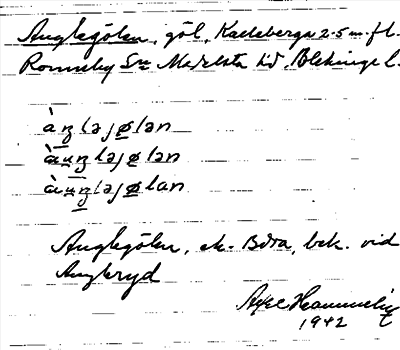 Anglegölen, göl, Karleberga 2-5 m. fl.
Ronneby Sn Medelsta hd, Blekinge l.
àŋləjølən
àuŋləjølən
àuŋləjølan
Anglegölen, ek. Bira, bek. vid
Angleryd
Axel Hammelin
1942